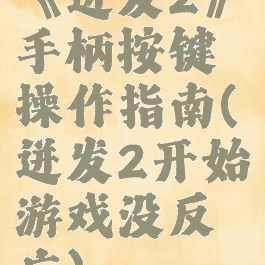 《迸发2》
手柄按键
操作指南(
迸发2开始
游戏没反
应)